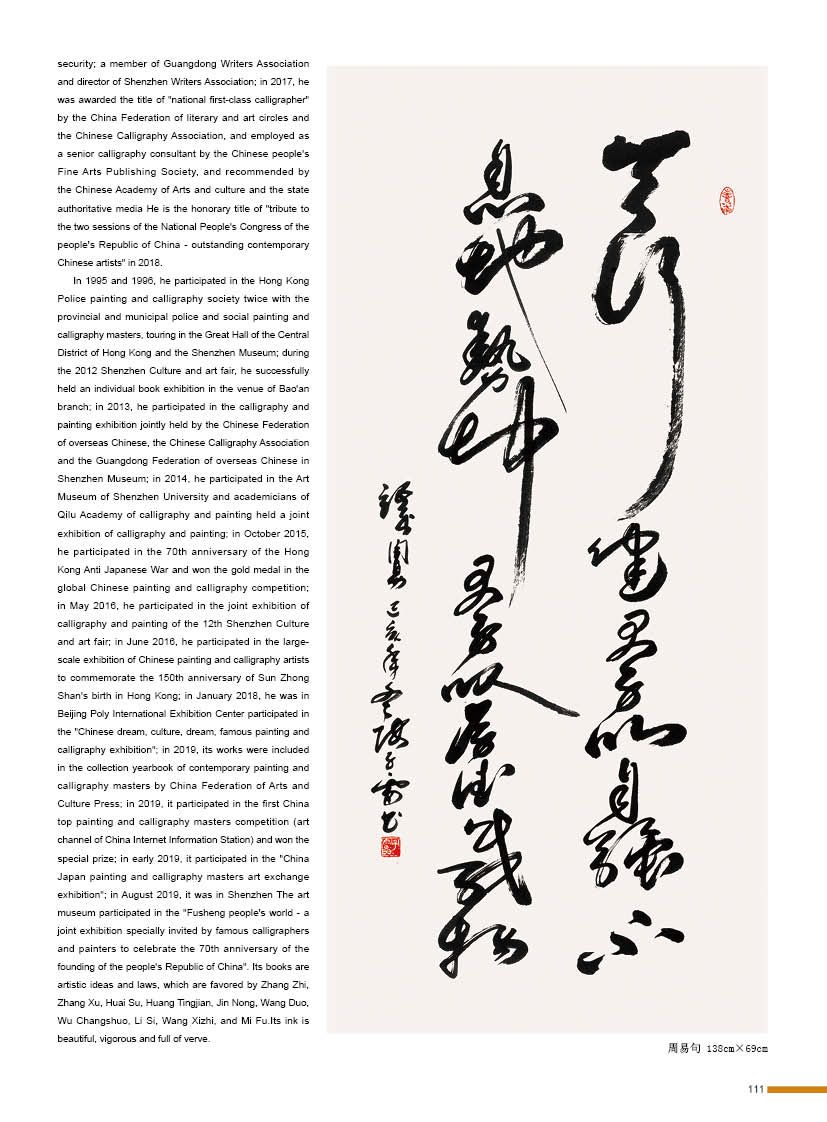 security; a member of Guangdong Writers Association
and director of Shenzhen Writers Association; in 2017, he
was awarded the title of "national first-class calligrapher"
by the China Federation of literary and art circles and
the Chinese Calligraphy Association, and employed as
a senior calligraphy consultant by the Chinese people's
Fine Arts Publishing Society, and recommended by
the Chinese Academy of Arts and culture and the state
authoritative media He is the honorary title of "tribute to
the two sessions of the National People's Congress of the
people's Republic of China - outstanding contemporary
Chinese artists" in 2018.
In 1995 and 1996, he participated in the Hong Kong
Police painting and calligraphy society twice with the
provincial and municipal police and social painting and
calligraphy masters, touring in the Great Hall of the Central
District of Hong Kong and the Shenzhen Museum; during
the 2012 Shenzhen Culture and art fair, he successfully
held an individual book exhibition in the venue of Bao'an
branch; in 2013, he participated in the calligraphy and
painting exhibition jointly held by the Chinese Federation
of overseas Chinese, the Chinese Calligraphy Association
and the Guangdong Federation of overseas Chinese in
Shenzhen Museum; in 2014, he participated in the Art
Museum of Shenzhen University and academicians of
Qilu Academy of calligraphy and painting held a joint
exhibition of calligraphy and painting; in October 2015,
he participated in the 70th anniversary of the Hong
Kong Anti Japanese War and won the gold medal in the
global Chinese painting and calligraphy competition;
in May 2016, he participated in the joint exhibition of
calligraphy and painting of the 12th Shenzhen Culture
and art fair; in June 2016, he participated in the large-
scale exhibition of Chinese painting and calligraphy artists
to commemorate the 150th anniversary of Sun Zhong
Shan's birth in Hong Kong; in January 2018, he was in
Beijing Poly International Exhibition Center participated in
the "Chinese dream, culture, dream, famous painting and
calligraphy exhibition"; in 2019, its works were included
in the collection yearbook of contemporary painting and
calligraphy masters by China Federation of Arts and
Culture Press; in 2019, it participated in the first China
top painting and calligraphy masters competition (art
channel of China Internet Information Station) and won the
special prize; in early 2019, it participated in the "China
Japan painting and calligraphy masters art exchange
exhibition"; in August 2019, it was in Shenzhen The art
museum participated in the "Fusheng people's world - a
joint exhibition specially invited by famous calligraphers
and painters to celebrate the 70th anniversary of the
founding of the people's Republic of China". Its books are
artistic ideas and laws, which are favored by Zhang Zhi,
Zhang Xu, Huai Su, Huang Tingjian, Jin Nong, Wang Duo,
Wu Changshuo, Li Si, Wang Xizhi, and Mi Fu.Its ink is
beautiful, vigorous and full of verve.
天行健君子以自強不
息地勢坤君子以厚德載物
周易己亥年冬
周易句 138cm×69cm
111